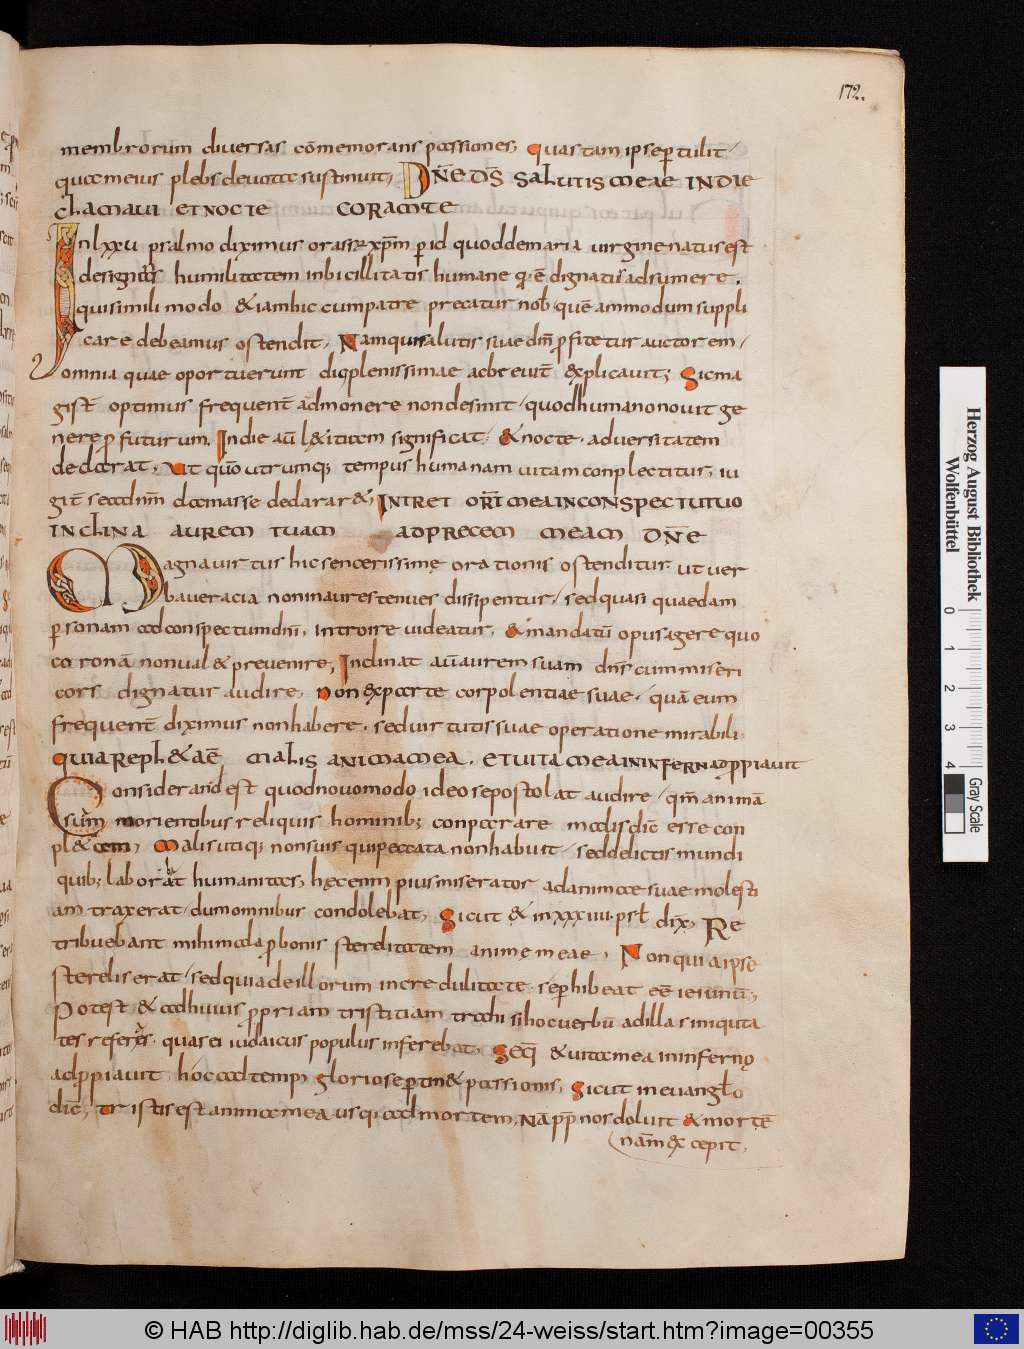 172.
membrorum diversas cōmemorans passiones, quas tam ipse pertulit
quae meius plebs devota sustinuit, DN̄E D̄S SALUTIS MEAE IN DIE
CLAMAVI ET NOCTE CORAM TE
In lxxu psalmo diximus orasse xp̄m p id quod de maria virgine natus est
humilitatem inbicillitatis humane dignatus adsumere.
qui simili modo & iam hic cum patre precatur nob quē ammodum suppli
care debeamus ostendit. Nam qui salutis suae dm̄ pfitetur auctorem
omnia quae oportuerunt digplenissimae adbreuit explicavit; Sic ma
gist optimus frequent admonere non desinit quod humano novit ge
nere pfuturum. In die aū l&itiam significat & nocte adversitatem
declarat. Ut quo utrumq; tempus humanam vitam conplectitur, iu
git se ad dnm̄ clamasse declarar&; INTRET OR̄T MEA IN CONSPECTU TUO
INCLINA AUREM TUAM AD PRECEM MEAM DN̄E
Magna virtus hic sencerissime orationis ostenditur ut ver
ba veracia non in aures tenues dissipentur, sed quasi quaedam
psonam ad conspectum dnī introire videatur, & mandatū opus agere quo
coronā non val& prevenire; Inclinat aū aurem suam dns cum miseri
cors dignatur audire, non exparte corpolentiae suae quā eum
frequent diximus non habere, sed virtutis suae operatione mirabili.
QUIA REPL&A Ē MALIS ANIMA MEA. ET VITA MEA IN INFERN ADPPIAVIT
Considerand est quod novo modo ideo se postolat audire qm̄ animā
suam morientibus reliquis hominib; conparare malis dic esse con
pl&am, Malis utiq; non suis qui peccata non habuit sed delictis mundi
quib; laborabat humanitas, hęc enim pius miserator ad animae suae molesti
am traxerat dum omnibus condolebat, Sicut & in xxxiiii psl̄ dix̄, Re
tribuebant mihi mala p bonis sterelitatem anime meae, Non quia ipse
sterelis erat sed quia de illorum incredulitate se phibeat eē ieiunū,
Potest & ad huius ppriam tristitiam trahi si hoc verbū ad illas iniquita
tes referas quas ei iudaicus populus inferebat, Seq & vita mea in inferno
adppiavit hoc ad temp gloriose ptin& passionis, Sicut in evanglo
dic, tristis est anima mea usq; ad mortem, Nā p pnos doluit & mortē
nam excepit,
Herzog August Bibliothek
Wolfenbüttel
0 1 2 3 4
Gray Scale
© HAB http://diglib.hab.de/mss/24-weiss/start.htm?image=00355